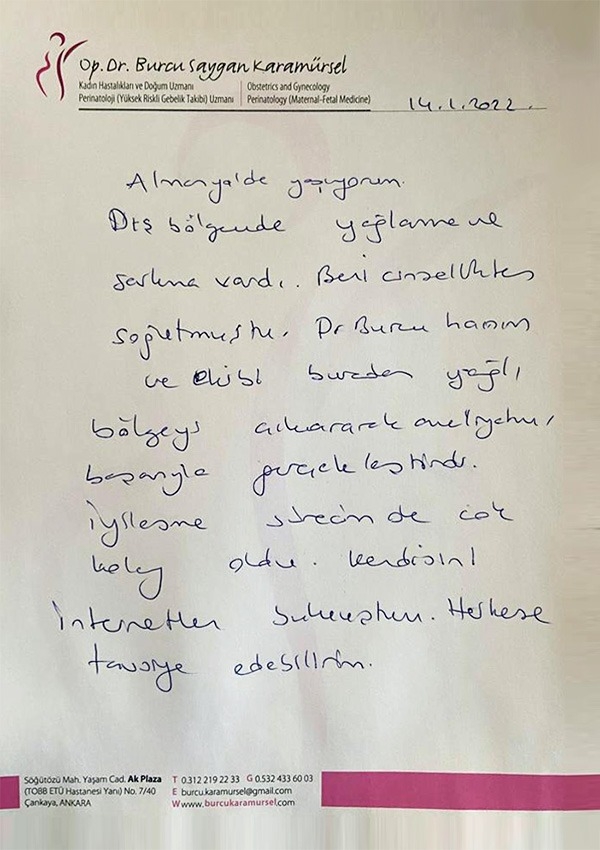 Op. Dr. Burcu Saygan Karamürsel
Kadın Hastalıkları ve Doğum Uzmanı
Perinatoloji (Yüksek Riskli Gebelik Takibi) Uzmanı
Obstetrics and Gynecology
Perinatology (Maternal-Fetal Medicine)
14.1.2022.
Almanya'da yaşıyorum.
Dış bölgemde yağlanma ve
sarkma vardı. Beni cinsellikten
soğutmuştu. Dr Burcu hanım
ve ekibi buradan yağlı
bölgeyi çıkararak ameliyatımı
başarıyla gerçekleştirdi.
İyileşme sürecim de çok
kolay oldu. Kendisini
internetten bulmuştum. Herkese
tavsiye edebilirim.
Söğütözü Mah. Yaşam Cad. Ak Plaza
(TOBB ETÜ Hastanesi Yanı) No. 7/40
Çankaya, ANKARA
T 0.312 219 22 33 G 0.532 433 60 03
E burcu.karamursel@gmail.com
W www.burcukaramursel.com